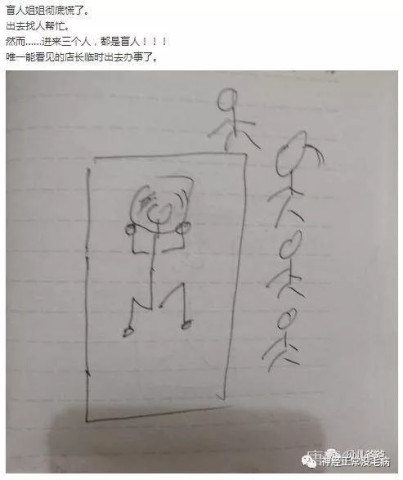 盲人姐姐彻底慌了。
出去找人帮忙。
然而......进来三个人，都是盲人！！！
唯一能看见的店长临时出去办事了。
神经正常没毛病